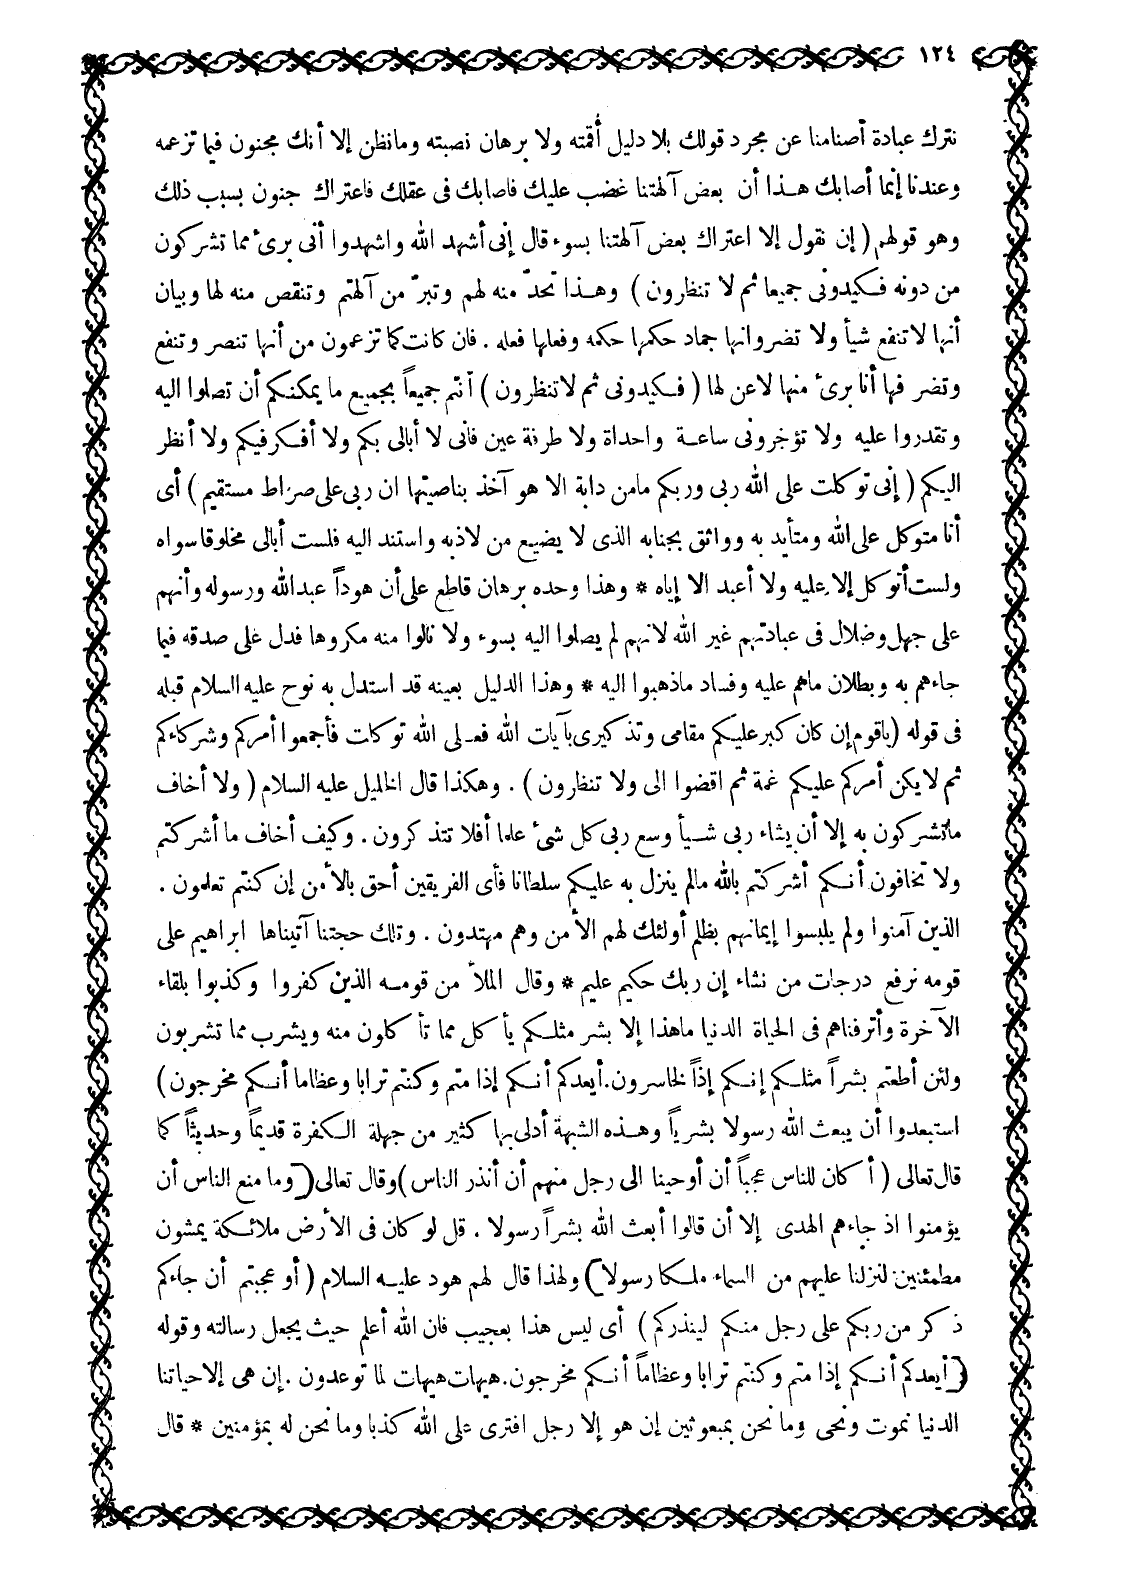 ١٢٤
نترك عبادة أصنامنا عن مجرد قولك بلا دليل أقمته ولا برهان نصبته ومانظن إلا أنك مجنون فيما تزعمه
وعندنا إنما أصابك هذا أن بعض آلهتنا غضب عليك فاصابك فى عقلك فاعتراك جنون بسبب ذلك
وهو قولهم ( إن نقول إلا اعتراك بعض آلهتنا بسوء قال إنى أشهد الله واشهدوا أنى برئ مما تشركون
من دونه فكيدونى جميعا ثم لا تنظرون ) وهذا تحدّ منه لهم وتبرّ من آلهتم وتنقص منه لها وبيان
أنها لاتنفع شيأ ولا تضر وانها جماد حكمها حكمه وفعلها فعله . فان كانت كما تزعمون من أنها تنصر وتنفع
وتضر فها أنا برئ منها لاعن لها ( فكيدونى ثم لاتنظرون ) أنتم جميعاً بجميع ما يمكنكم أن تصلوا اليه
وتقدروا عليه ولا تؤخرونى ساعة واحداة ولا طرفة عين فانى لا أبالى بكم ولا أفكر فيكم ولا أنظر
اليكم ( إنى توكلت على الله ربى وربكم مامن دابة الا هو آخذ بناصيتها ان ربى على صراط مستقيم ) أى
أنا متوكل على الله ومتأيد به وواثق بجنابه الذى لا يضيع من لاذبه واستند اليه فلست أبالى مخلوقا سواه
ولست أتوكل إلا عليه ولا أعبد الا إياه * وهذا وحده برهان قاطع على أن هوداً عبدالله ورسوله وأنهم
على جهل وضلال فى عبادتهم غير الله لانهم لم يصلوا اليه بسوء ولا نالوا منه مكروها فدل على صدقه فيما
جاءهم به وبطلان ماهم عليه وفساد ماذهبوا اليه * وهذا الدليل بعينه قد استدل به نوح عليه السلام قبله
فى قوله ( ياقوم إن كان كبر عليكم مقامى وتذكيرى بآيات الله فعلى الله توكلت فأجمعوا أمركم وشركاءكم
ثم لايكن أمركم عليكم غمة ثم اقضوا الى ولا تنظرون ) . وهكذا قال الخليل عليه السلام ( ولا أخاف
ماتشركون به إلا أن يشاء ربى شيأ وسع ربى كل شئ علما أفلا تتذكرون . وكيف أخاف ما أشركتم
ولا تخافون أنكم أشركتم بالله مالم ينزل به عليكم سلطانا فأى الفريقين أحق بالأمن إن كنتم تعلمون .
الذين آمنوا ولم يلبسوا إيمانهم بظلم أولئك لهم الأمن وهم مهتدون . وتلك حجتنا آتيناها ابراهيم على
قومه نرفع درجات من نشاء إن ربك حكيم عليم * وقال الملأ من قومه الذين كفروا وكذبوا بلقاء
الآخرة وأترفناهم فى الحياة الدنيا ماهذا إلا بشر مثلكم يأكل مما تأكلون منه ويشرب مما تشربون
ولئن أطعتم بشراً مثلكم إنكم إذاً لخاسرون. أيعدكم أنكم إذا متم وكنتم ترابا وعظاما أنكم مخرجون )
استبعدوا أن يبعث الله رسولا بشرياً وهذه الشبهة أدلى بها كثير من جهلة الكفرة قديماً وحديثاً كما
قال تعالى ( أكان للناس عجباً أن أوحينا الى رجل منهم أن أنذر الناس ) وقال تعالى ( وما منع الناس أن
يؤمنوا اذ جاءهم الهدى إلا أن قالوا أبعث الله بشراً رسولا . قل لو كان فى الأرض ملائكة يمشون
مطمئنين لنزلنا عليهم من السماء ملكا رسولا ) ولهذا قال لهم هود عليه السلام ( أو عجبتم أن جاءكم
ذكر من ربكم على رجل منكم لينذركم ) أى ليس هذا بعجيب فان الله أعلم حيث يجعل رسالته وقوله
( أيعدكم أنكم إذا متم وكنتم ترابا وعظاماً أنكم مخرجون. هيهات هيهات لما توعدون . إن هى إلا حياتنا
الدنيا نموت ونحى وما نحن بمبعوثين إن هو إلا رجل افترى على الله كذبا وما نحن له بمؤمنين * قال